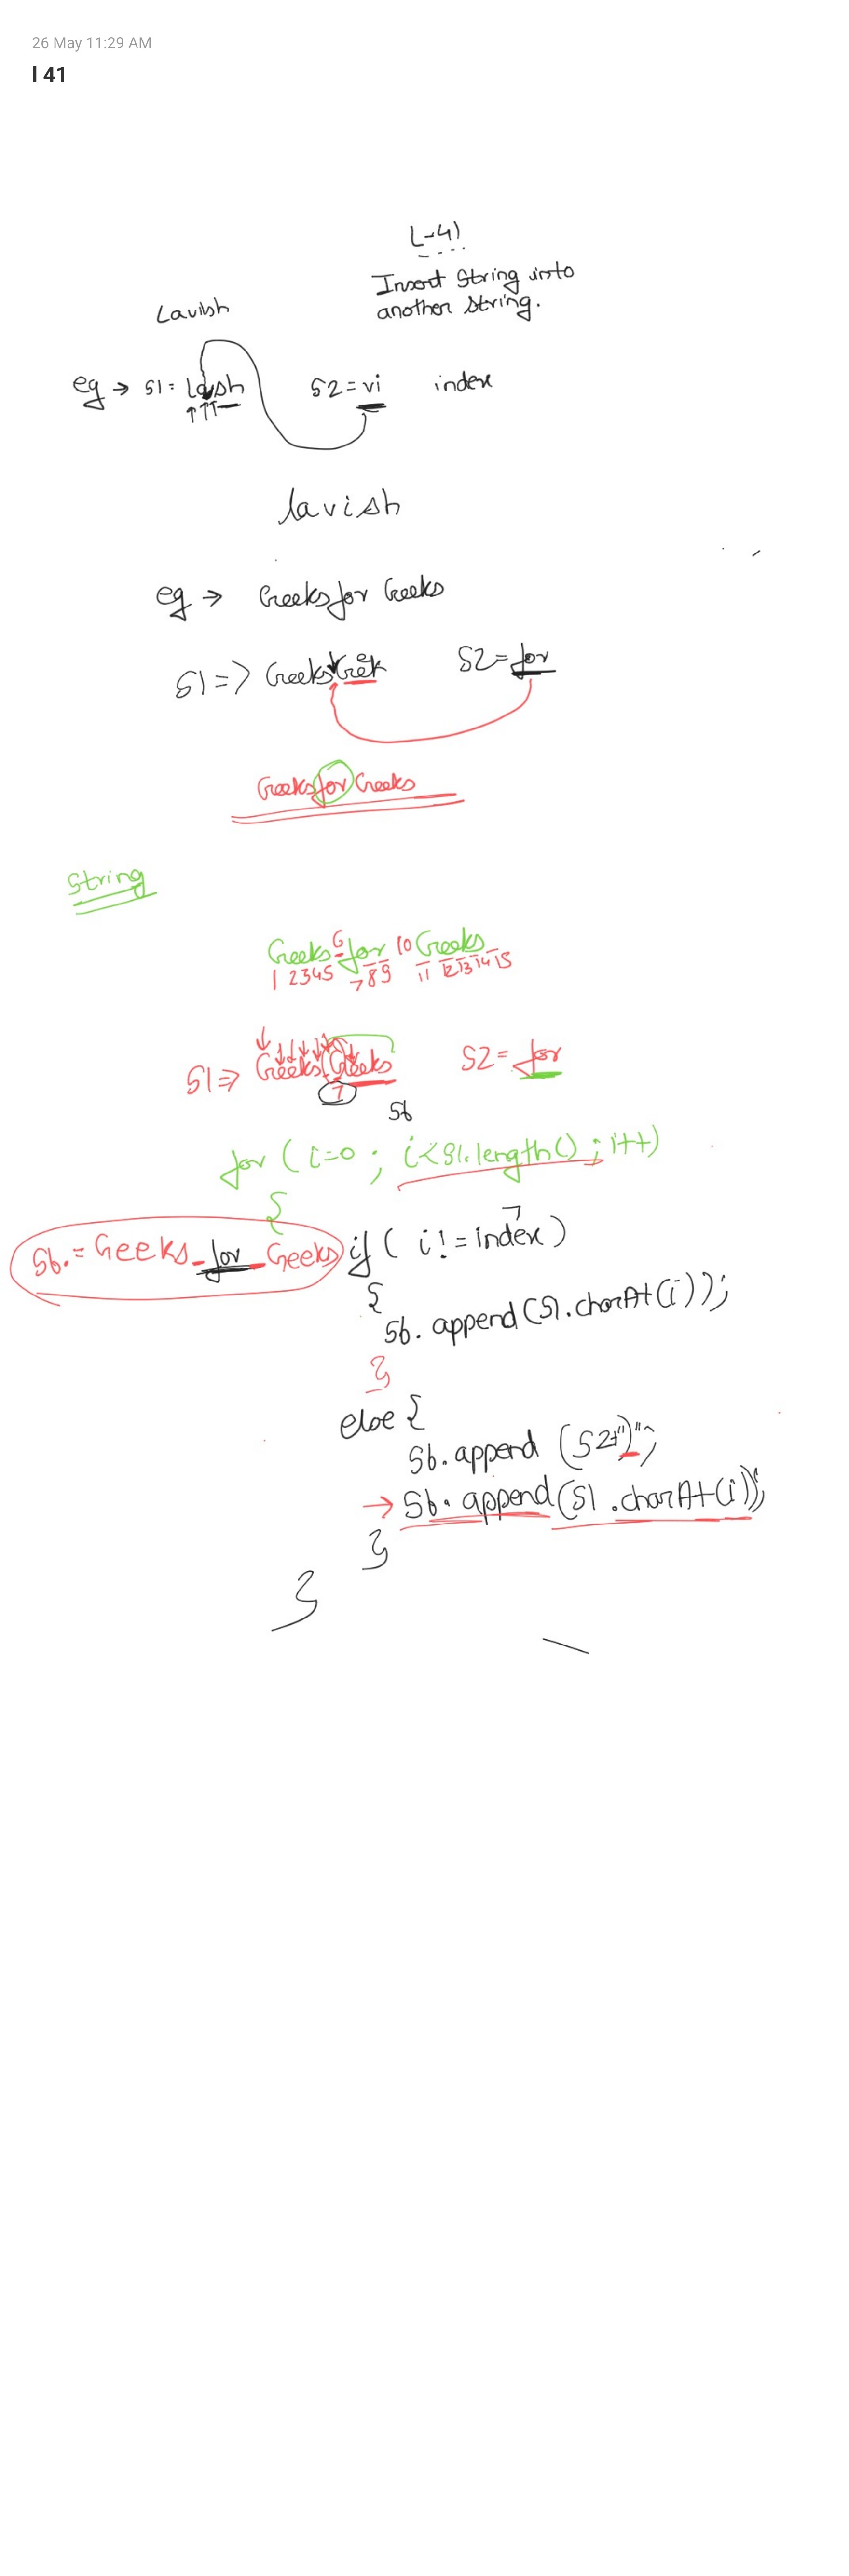 26 May 11:29 AM
l 41
L-41
Insert String into
another String.
Lavish
eg → S1 = lash S2 = vi index
lavish
eg → Geeksfor Geeks
S1 => Geeks S2 = for
Geeksfor Geeks
String
Geeks 6 for 10 Geeks
1 2345 789 11 12 13 14 15
S1 => Geeks Geeks S2 = for
7
Sb
for ( i=0 ; i<S1.length() ; i++)
{
7
Sb. = Geeks_for_Geeks if ( i != index )
{
Sb. append (S1.charAt(i));
}
else {
Sb. append (S2+" ");
→ Sb. append (S1.charAt(i));
}
}